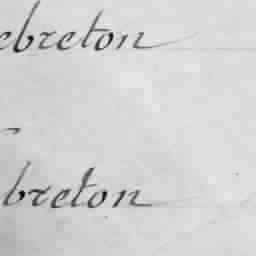 ebreton
breton